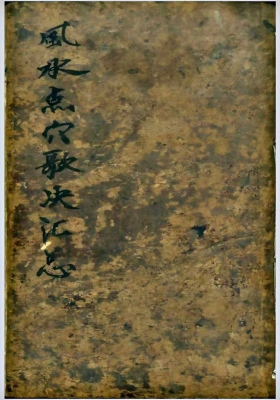 風水点穴歌決汇总